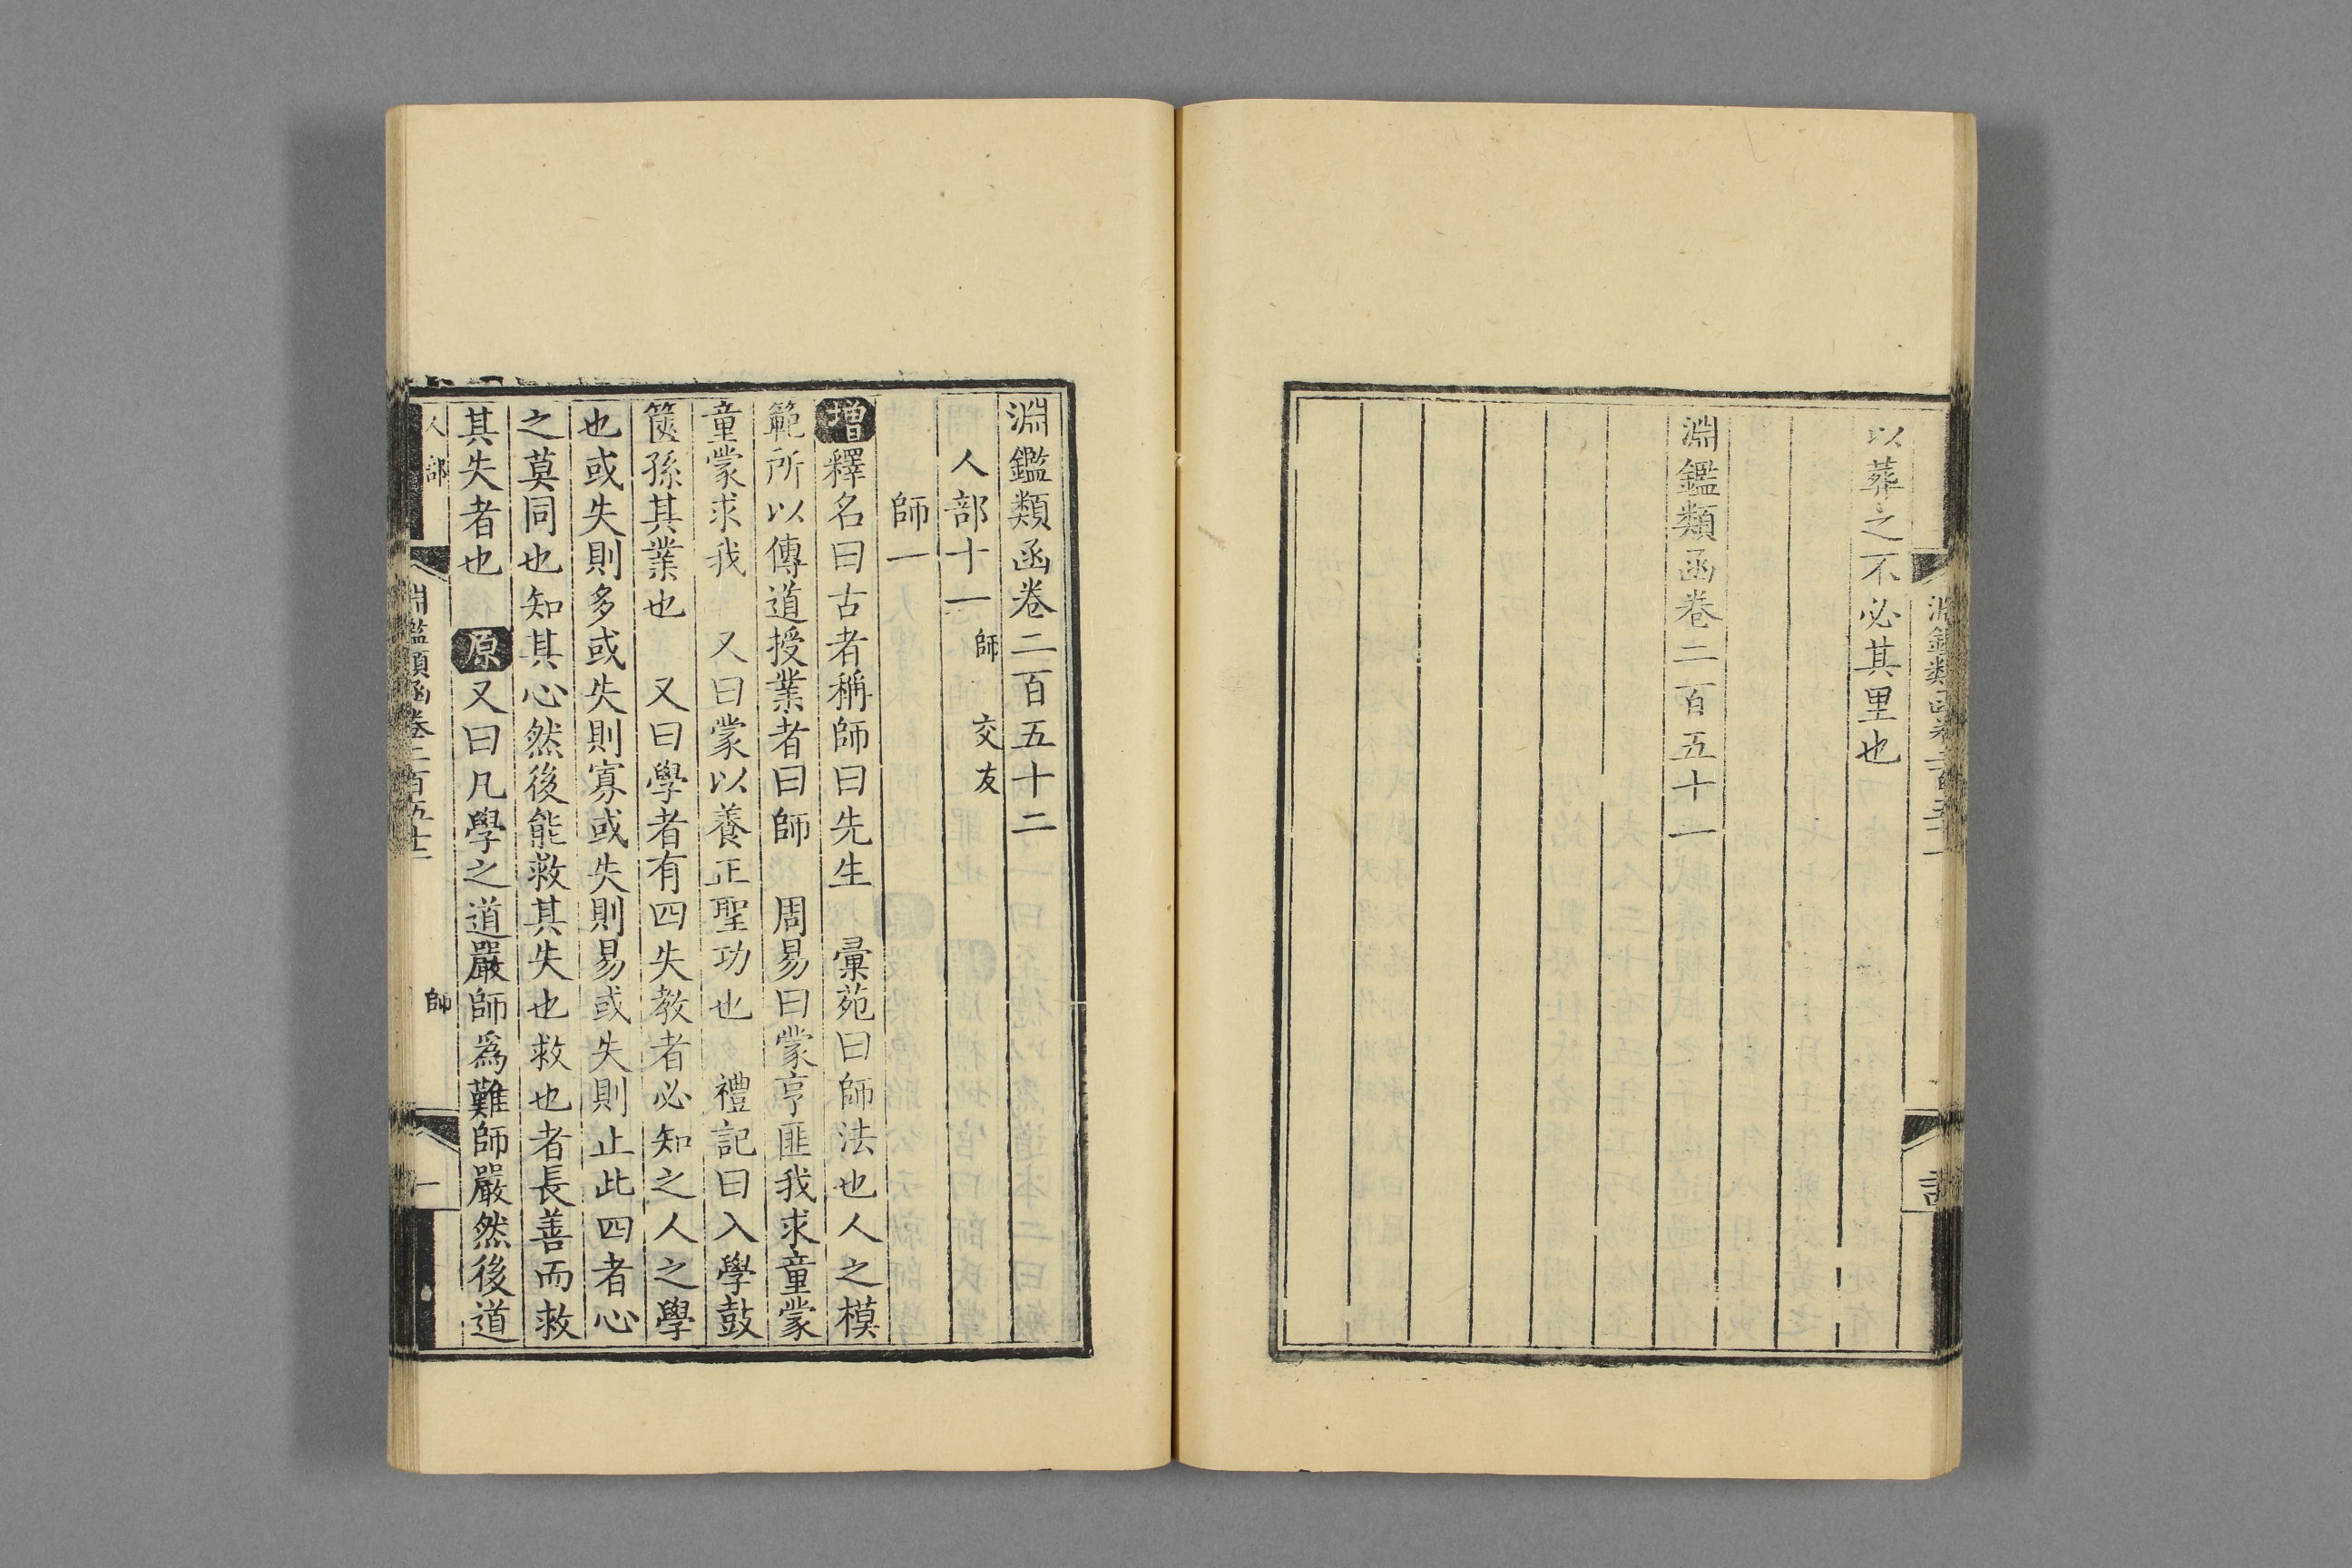 以葬之不必其里也
淵鑑類函卷二百五十一
淵鑑類函卷二百五十二
人部十一 師 交友
師一
增釋名曰古者稱師曰先生 彙苑曰師法也人之模
範所以傳道授業者曰師 周易曰蒙亨匪我求童蒙
童蒙求我 又曰蒙以養正聖功也 禮記曰入學鼓
篋孫其業也 又曰學者有四失教者必知之人之學
也或失則多或失則寡或失則易或失則止此四者心
之莫同也知其心然後能救其失也救也者長善而救
其失者也 原又曰凡學之道嚴師為難師嚴然後道
人部
淵鑑類函卷二百五十二
師
一